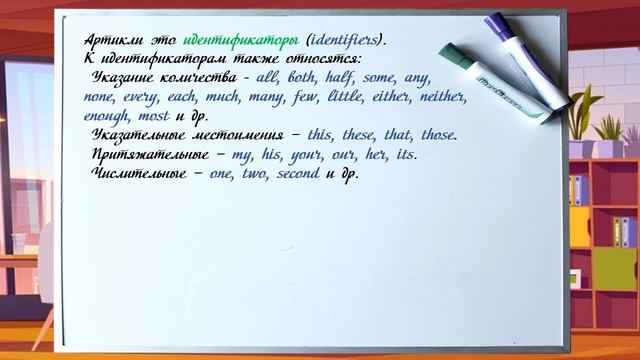 Артикли это идентификаторы (identifiers).
К идентификаторам также относятся:
Указание количества - all, both, half, some, any,
none, every, each, much, many, few, little, either, neither,
enough, most и др.
Указательные местоимения – this, these, that, those.
Притяжательные – my, his, your, our, her, its.
Числительные – one, two, second и др.